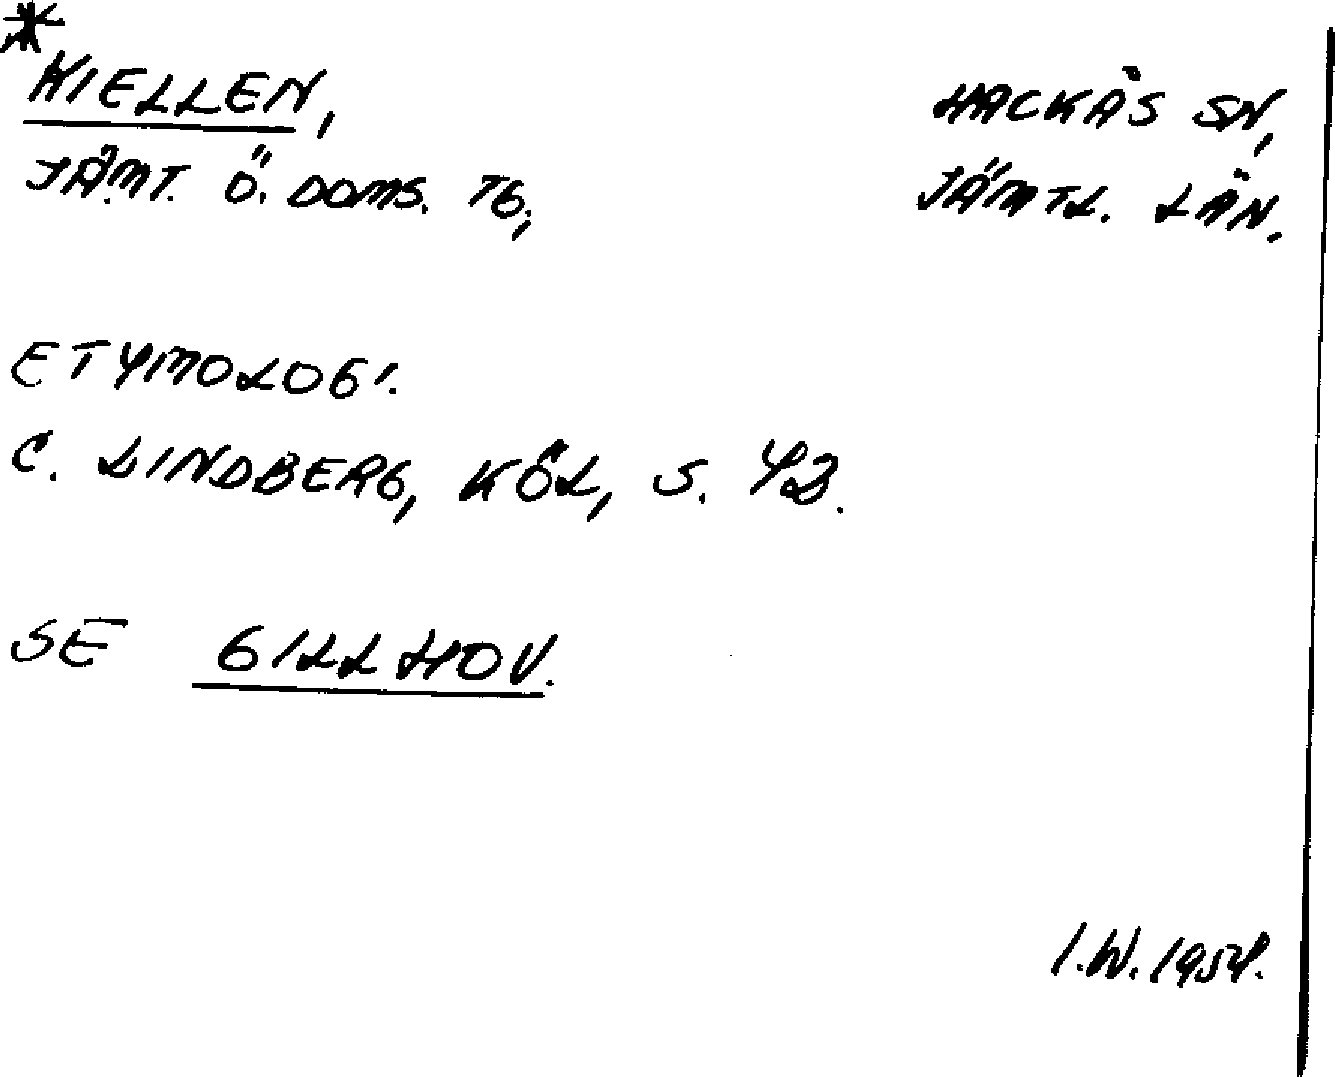 * KIELLEN, HACKÅS SN,
JÄMT. Ö. DOMS. TG; JÄMTL. LÄN.
ETYMOLOGI.
C. LINDBERG, KÖL, S. 43.
SE GILLHOV.
I.W. 1954.